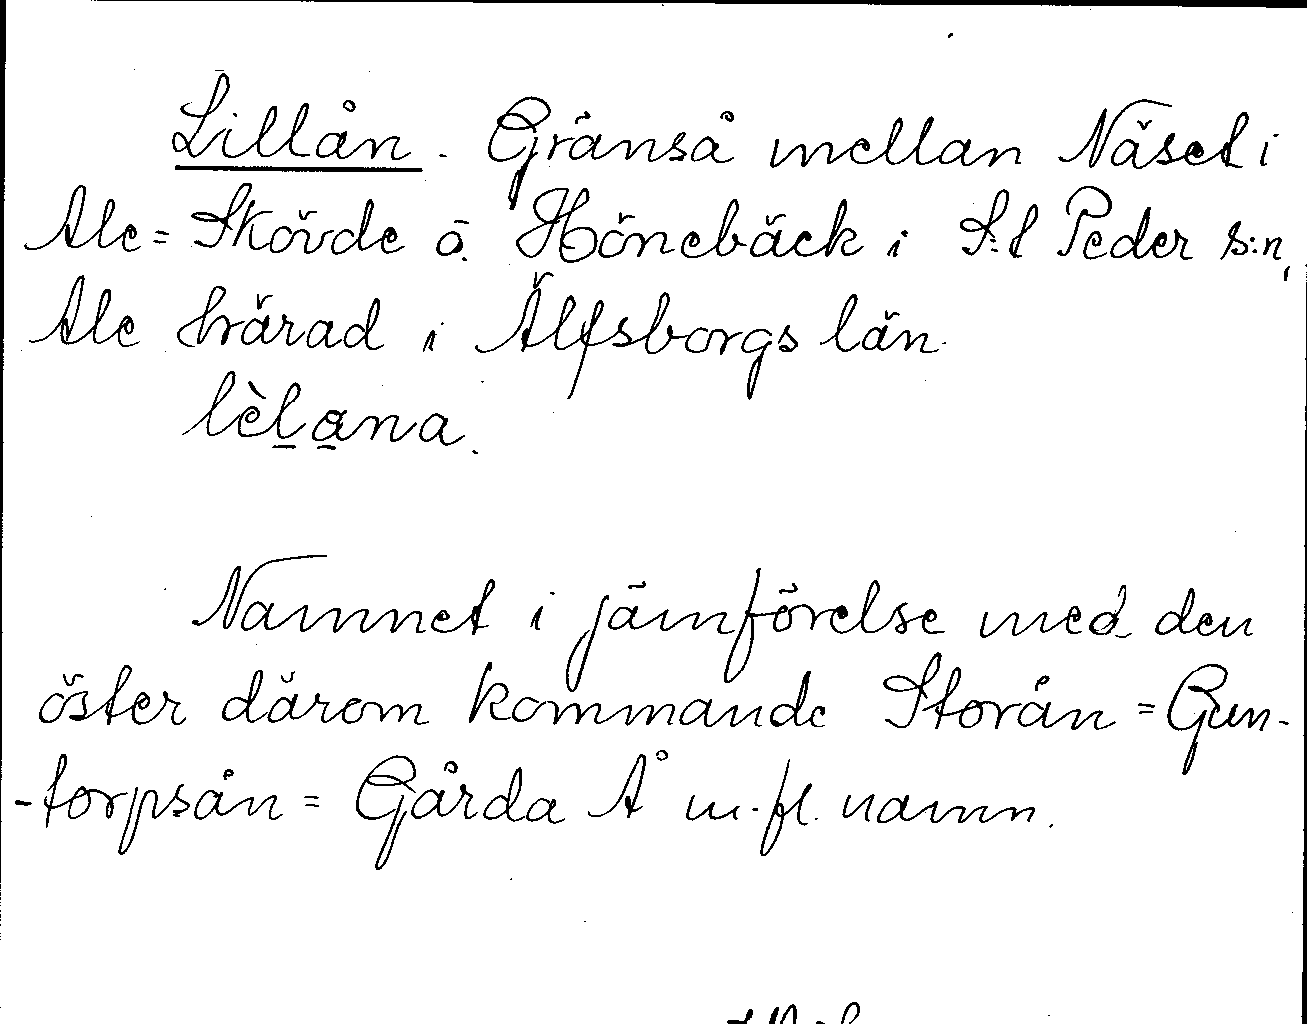 Lillån. Gränså mellan Näset i
Ale=Skövde ö. Hönebäck i S:t Peder s:n,
Ale härad i Älfsborgs län.
lèlana.
Namnet i jämförelse med den
öster därom kommande Storån = Gun-
-torpsån = Gårda Å m.fl. namn.